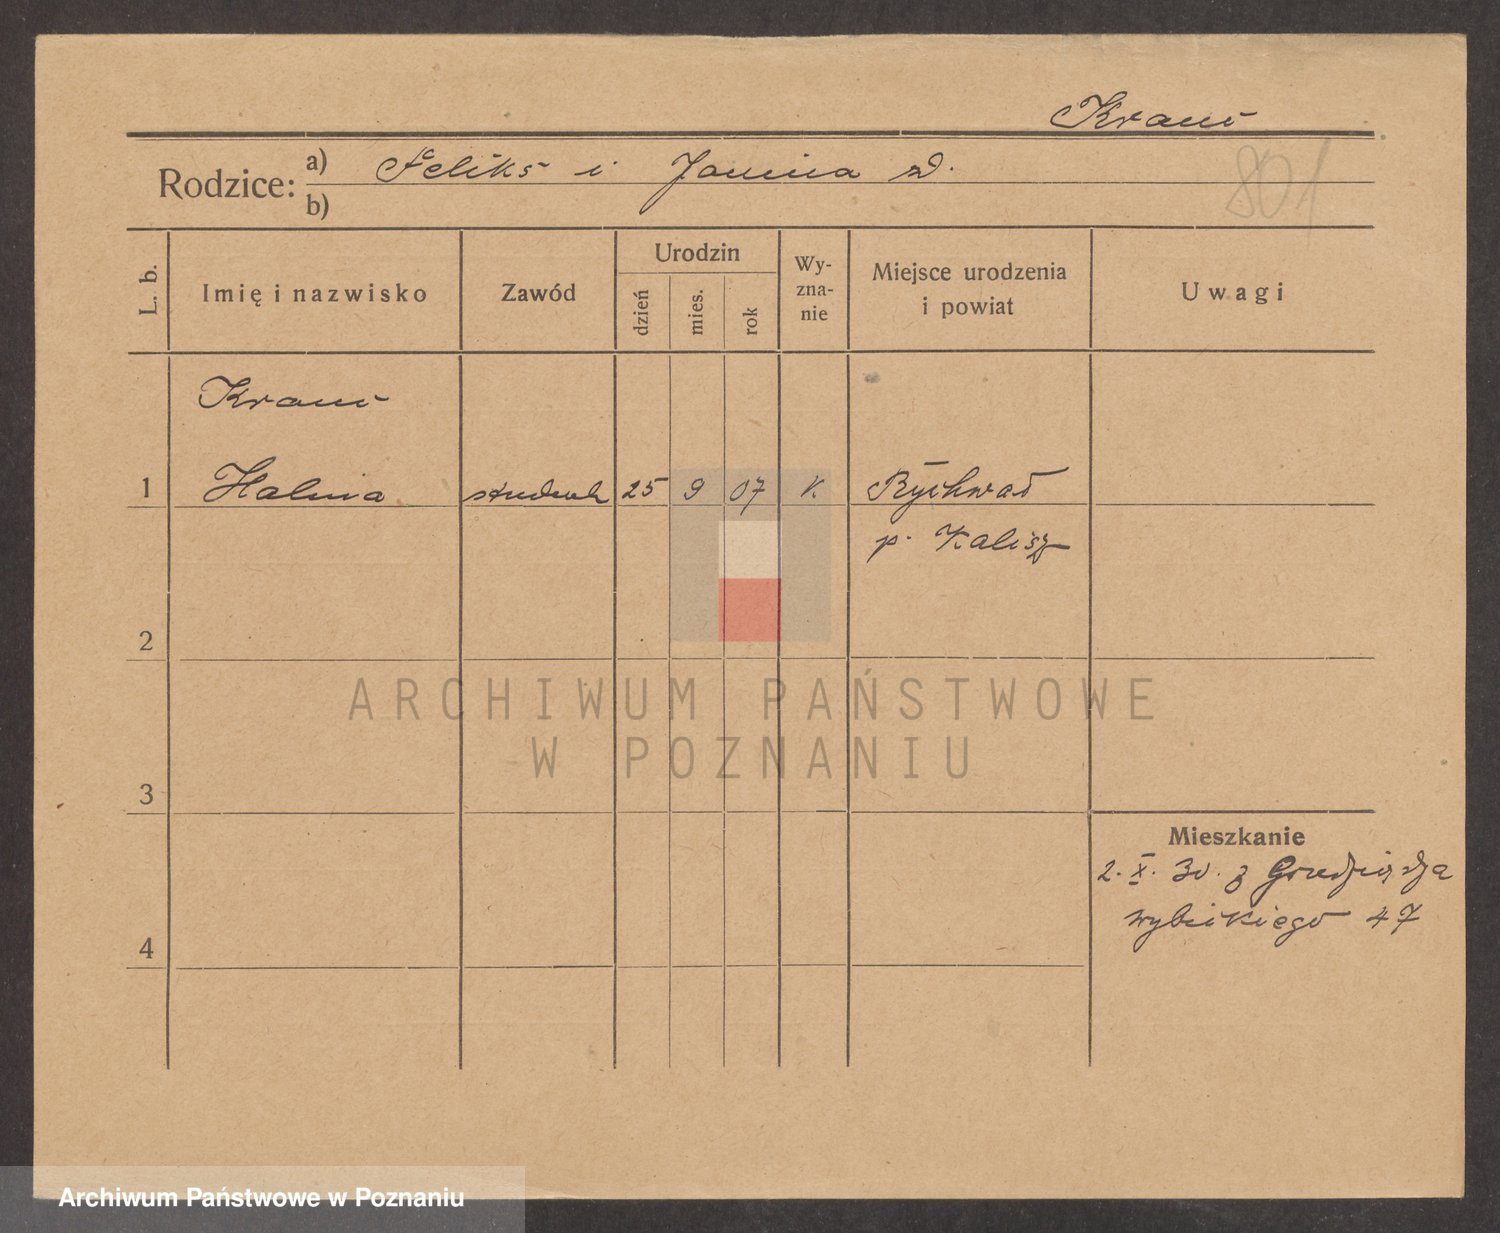 Kraus
Rodzice: a) Feliks i Janina zd.
b)
801
L. b. Imię i nazwisko Zawód Urodzin dzień mies. rok Wy-zna-nie Miejsce urodzenia i powiat Uwagi
Kraus
1 Halina student 25 9 07 k. Rychwał
p. Kalisz
2
3
Mieszkanie
2. X. 30. z Grudziądza
4 Wybickiego 47
ARCHIWUM PAŃSTWOWE
W POZNANIU
Archiwum Państwowe w Poznaniu